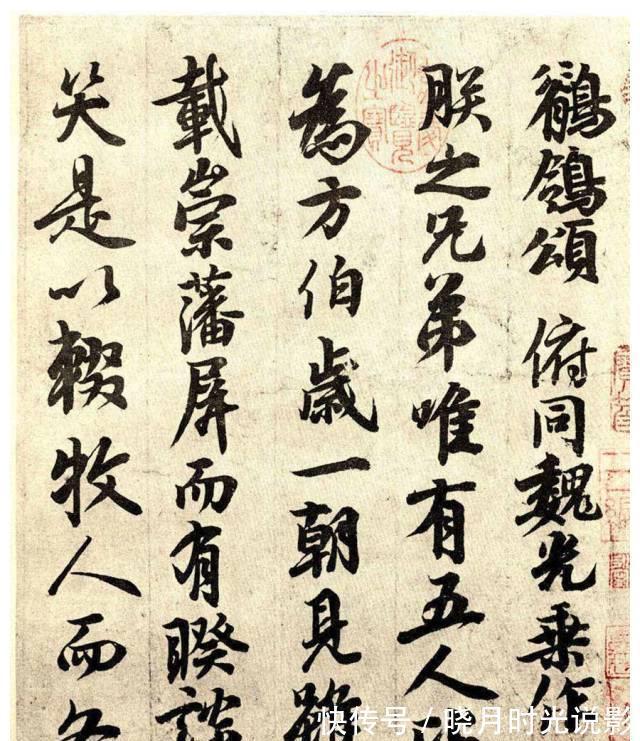 鶺鴒頌 俯同魏光乘作
朕之兄弟唯有五人
為方伯歲一朝見雖
載崇藩屏而有睽談
笑是以輟牧人而各
快传号/晓月时光说影